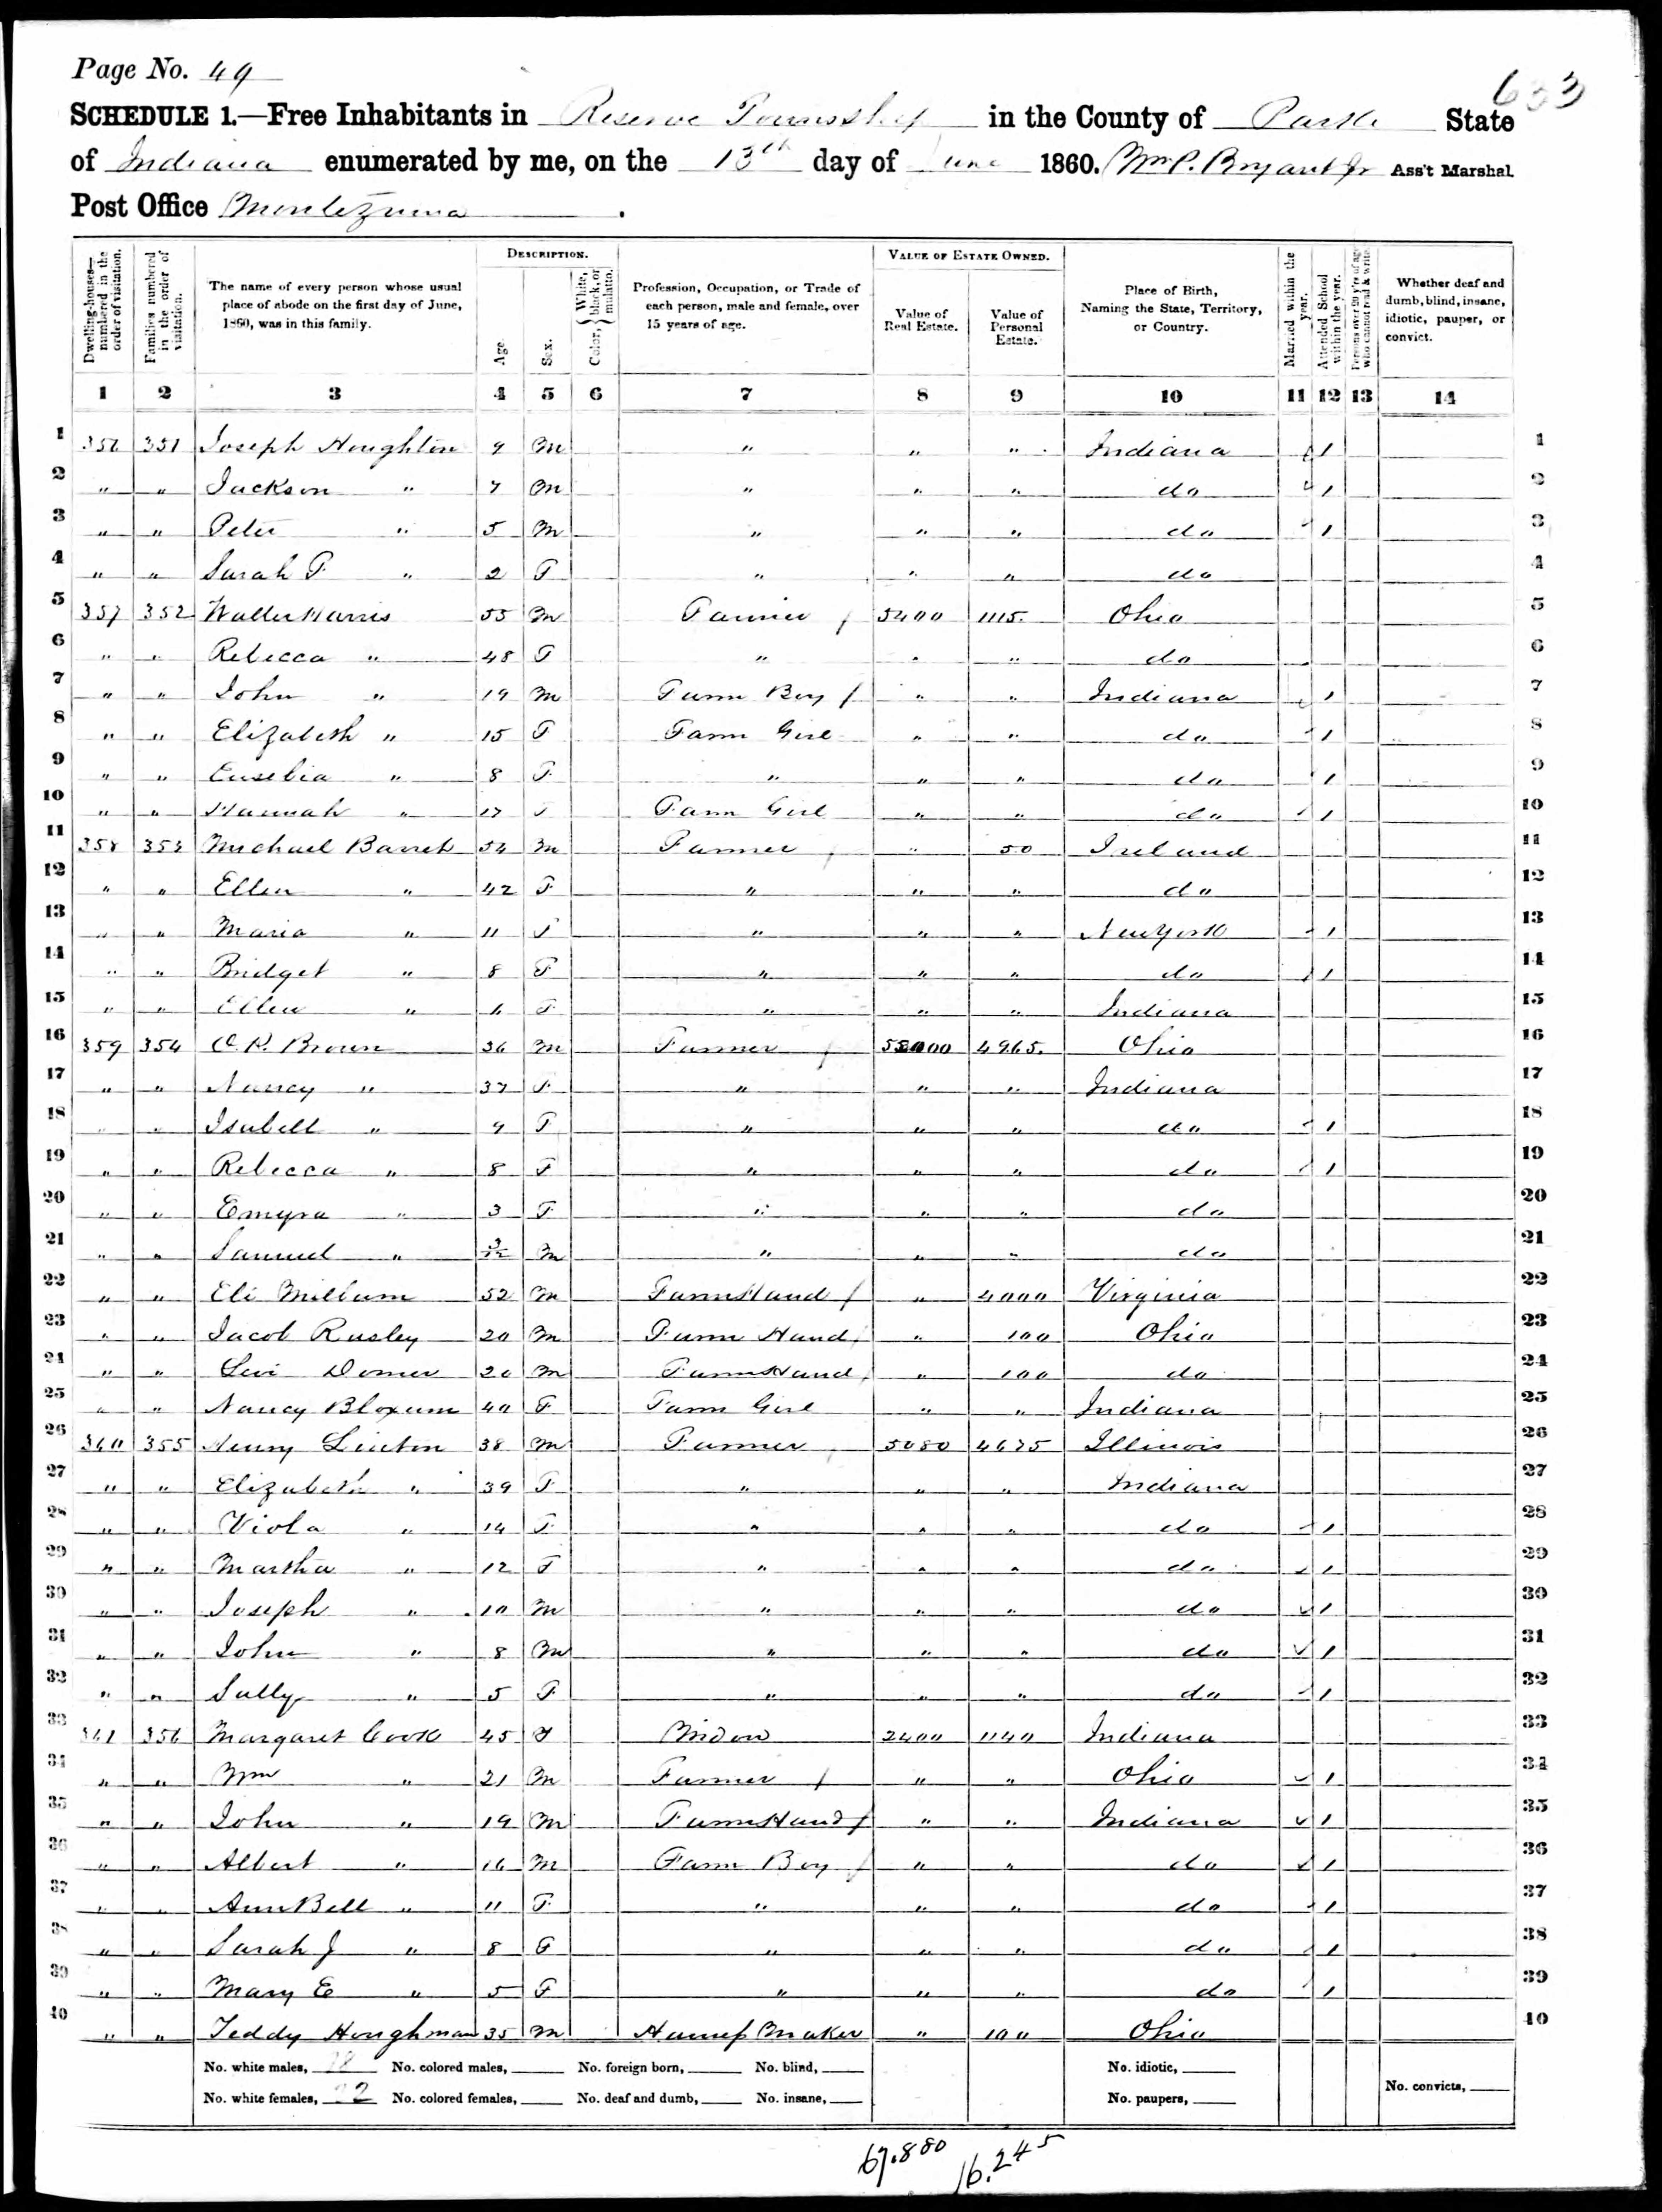 Page No. 49
633
SCHEDULE 1.—Free Inhabitants in Reserve Township in the County of Parke State
of Indiana enumerated by me, on the 13th day of June 1860. Wm P. Bryant Jr Ass't Marshal.
Post Office Montezuma .
Dwelling-houses—numbered in the order of visitation. Families numbered in the order of visitation. The name of every person whose usual place of abode on the first day of June, 1860, was in this family. DESCRIPTION. Age. Sex. Color, {White, black, or mulatto. Profession, Occupation, or Trade of each person, male and female, over 15 years of age. VALUE OF ESTATE OWNED. Value of Real Estate. Value of Personal Estate. Place of Birth, Naming the State, Territory, or Country. Married within the year. Attended School within the year. Persons over 20 years of age who cannot read & write. Whether deaf and dumb, blind, insane, idiotic, pauper, or convict.
1 2 3 4 5 6 7 8 9 10 11 12 13 14
1 356 351 Joseph Houghton 9 M " " " Indiana / 1
2 " " Jackson " 7 M " " " do / 2
3 " " Peter " 5 M " " " do / 3
4 " " Sarah F. " 2 F " " " do 4
5 357 352 Walter Harris 55 M Farmer 5400 1115. Ohio 5
6 " " Rebecca " 48 F " " " do 6
7 " " John " 19 M Farm Boy " " Indiana / 7
8 " " Elizabeth " 15 F Farm Girl " " do / 8
9 " " Eusebia " 8 F " " " do / 9
10 " " Hannah " 17 F Farm Girl " " do / 10
11 358 353 Michael Barret 54 M Farmer " 50 Ireland 11
12 " " Ellen " 42 F " " " do 12
13 " " Maria " 11 F " " " New York / 13
14 " " Bridget " 8 F " " " do / 14
15 " " Ellen " 6 F " " " Indiana 15
16 359 354 O. P. Brown 36 M Farmer 55000 4965. Ohio 16
17 " " Nancy " 37 F " " " Indiana 17
18 " " Isabell " 9 F " " " do / 18
19 " " Rebecca " 8 F " " " do / 19
20 " " Emyra " 3 F " " " do 20
21 " " Samuel " 3/12 M " " " do 21
22 " " Eli Millum 52 M Farm Hand " 4000 Virginia 22
23 " " Jacob Rusley 20 M Farm Hand " 100 Ohio 23
24 " " Levi Domer 20 M Farm Hand " 100 do 24
25 " " Nancy Bloxum 40 F Farm Girl " " Indiana 25
26 360 355 Henry Linton 38 M Farmer 5080 4675 Illinois 26
27 " " Elizabeth " 39 F " " " Indiana 27
28 " " Viola " 14 F " " " do / 28
29 " " Martha " 12 F " " " do / 29
30 " " Joseph " 10 M " " " do / 30
31 " " John " 8 M " " " do / 31
32 " " Sally " 5 F " " " do / 32
33 361 356 Margaret Cook 45 F Widow 2400 1140 Indiana 33
34 " " Wm " 21 M Farmer " " Ohio / 34
35 " " John " 19 M Farm Hand " " Indiana / 35
36 " " Albert " 16 M Farm Boy " " do / 36
37 " " Ann Bell " 11 F " " " do / 37
38 " " Sarah J " 8 F " " " do / 38
39 " " Mary E " 5 F " " " do / 39
40 " " Teddy Houghman 35 M Harness Maker " 100 Ohio 40
No. white males, 18 No. colored males, No. foreign born, No. blind, No. idiotic,
No. white females, 22 No. colored females, No. deaf and dumb, No. insane, No. paupers, No. convicts,
67.880 16.245